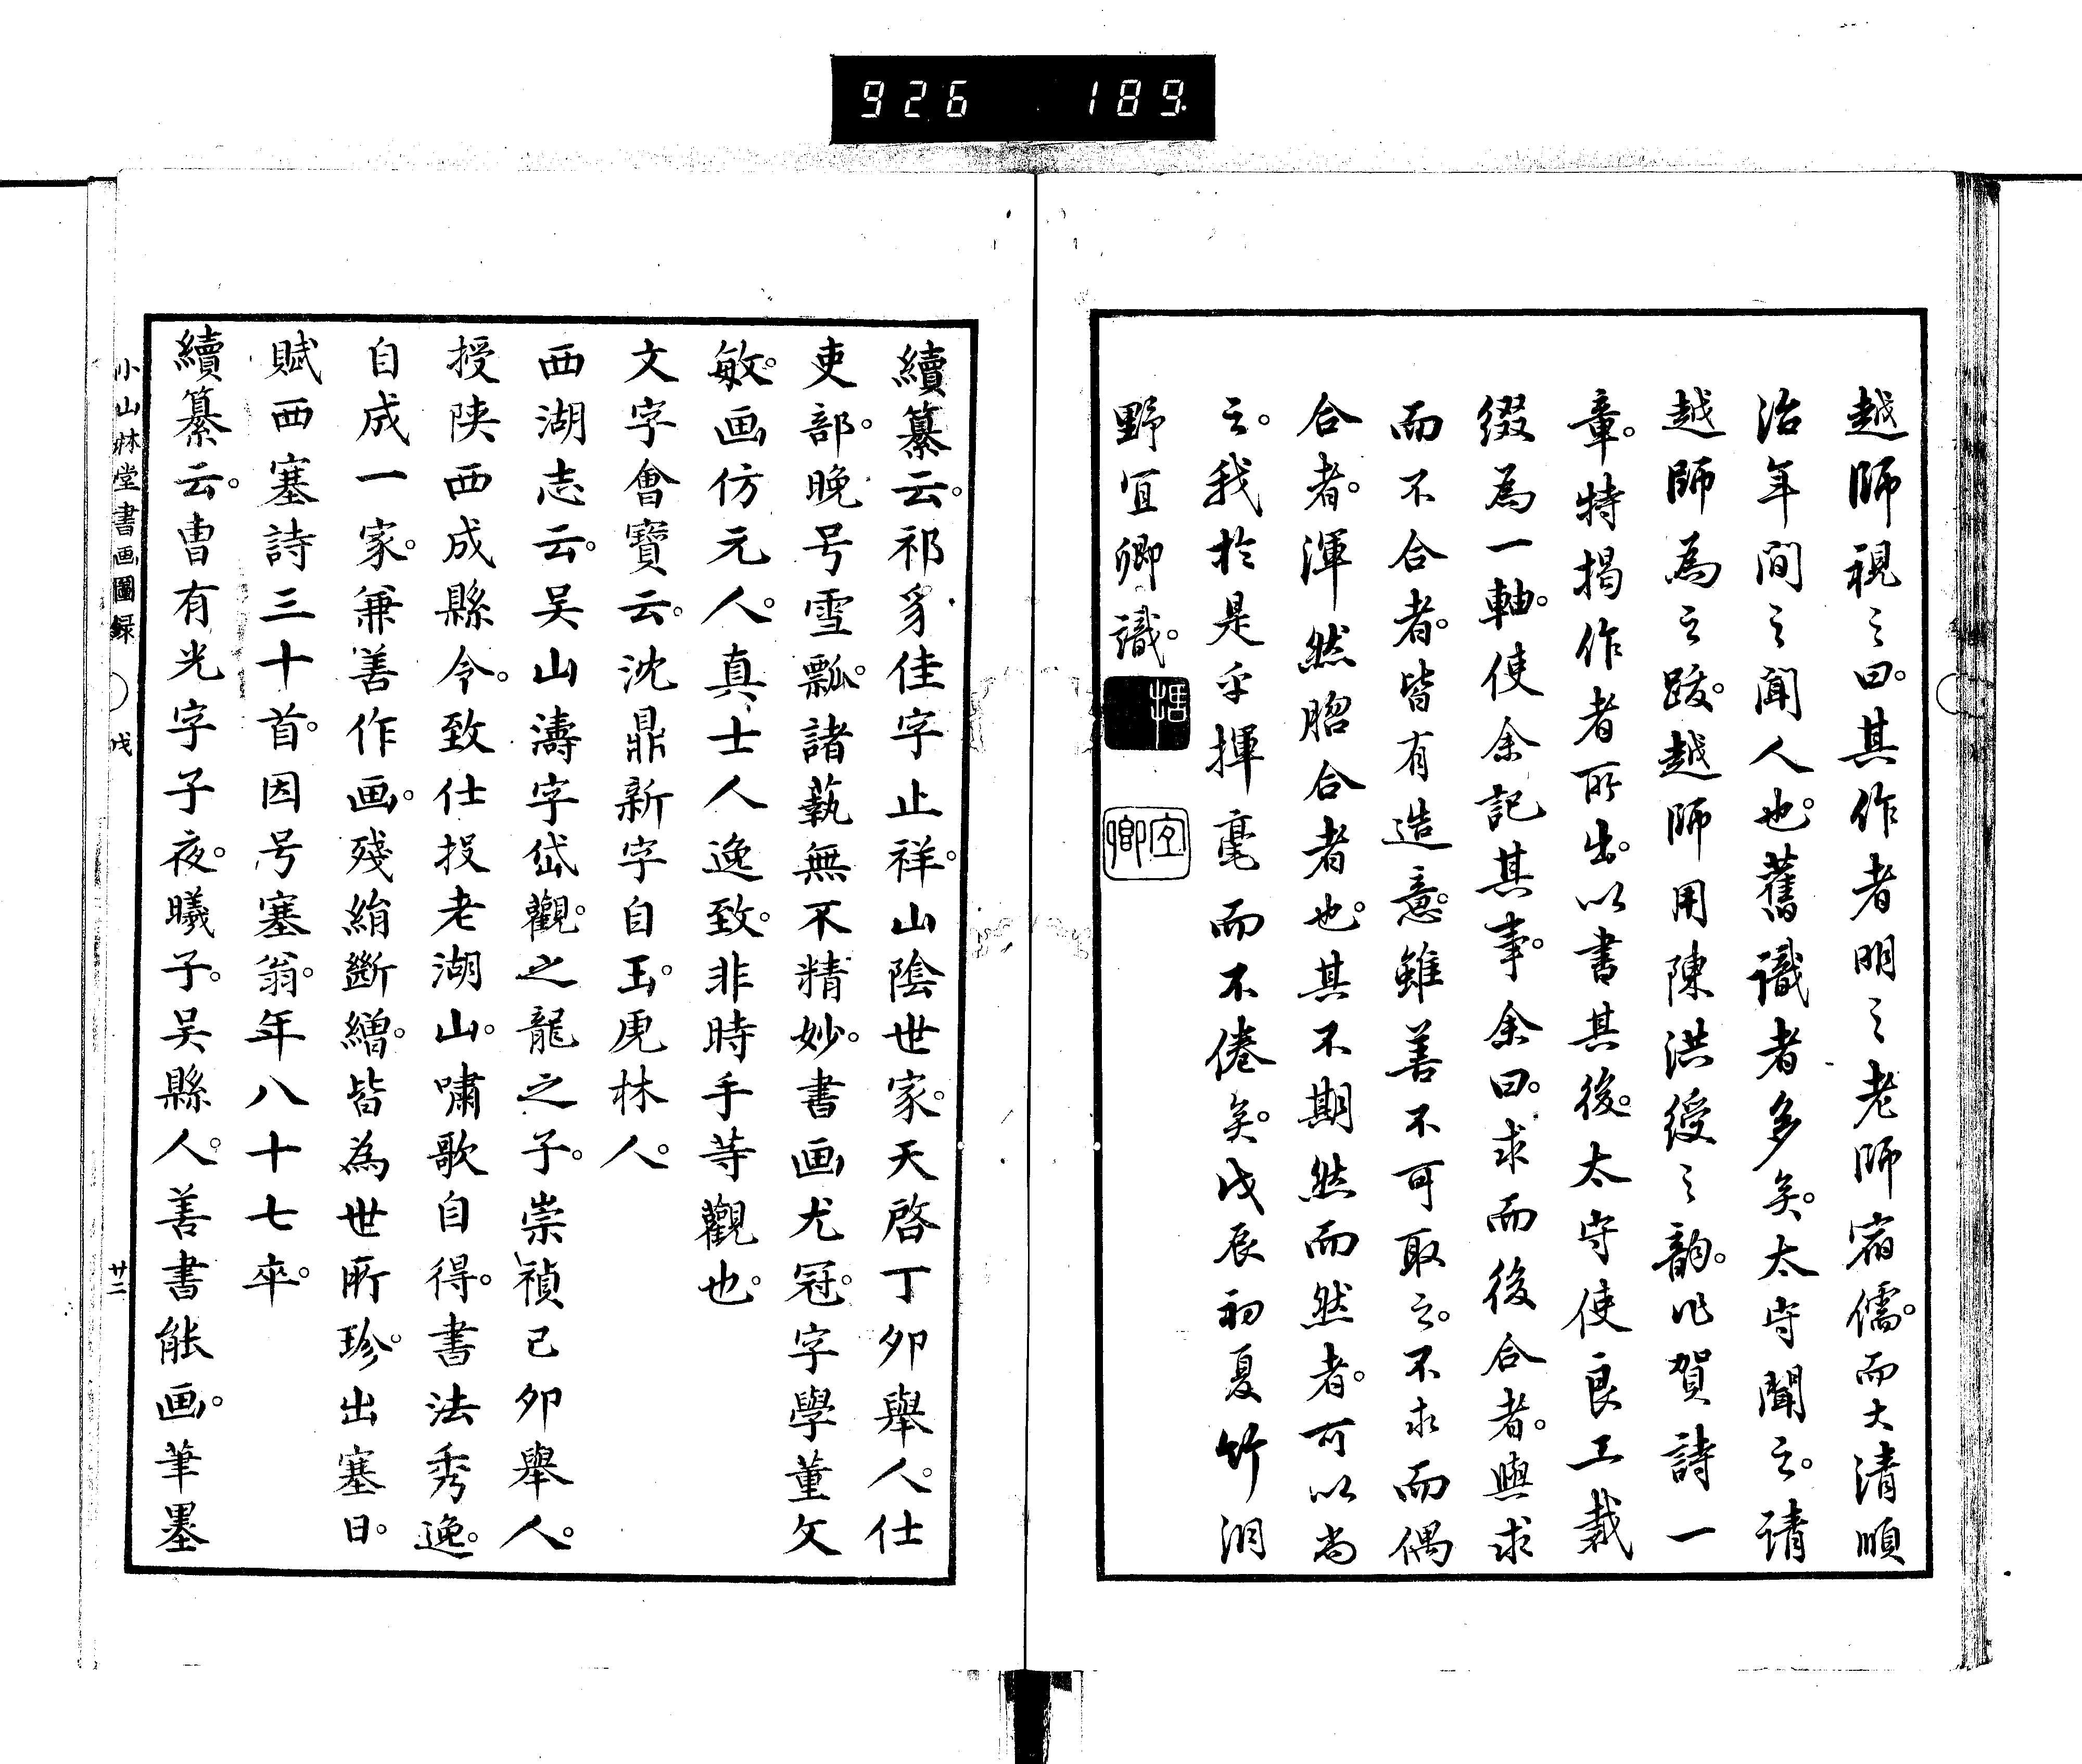 926 189
越師視之曰。其作者明之老師宿儒。而大清順
治年間之聞人也。舊識者多矣。太守聞之。請
越師為之跋。越師用陳洪綬之韵。作賀詩一
章。特揭作者所出。以書其後。太守使良工裁
綴為一軸。使余記其事。余曰。求而後合者。與求
而不合者。皆有造意。雖善不可取之。不求而偶
合者。渾然脗合者也。其不期然而然者。可以尚
之。我於是乎揮毫而不倦矣。戊辰初夏竹洞
野宜卿識。
宜卿
續纂云。祁豸佳字止祥。山陰世家。天啓丁卯舉人。仕
吏部。晚号雪瓢。諸藝無不精妙。書画尤冠。字學董文
敏。画仿元人。真士人逸致。非時手等觀也。
文字會寶云。沈鼎新字自玉。虎林人。
西湖志云。吴山濤字岱觀。之龍之子。崇禎己卯舉人。
授陝西成縣令。致仕投老湖山。嘯歌自得。書法秀逸。
自成一家。兼善作画。殘絹斷繒。皆為世所珍。出塞日。
賦西塞詩三十首。因号塞翁。年八十七卒。
續纂云。曺有光字子夜。曦子。吴縣人。善書能画。筆墨
小山林堂書画圖録 戊 廿二